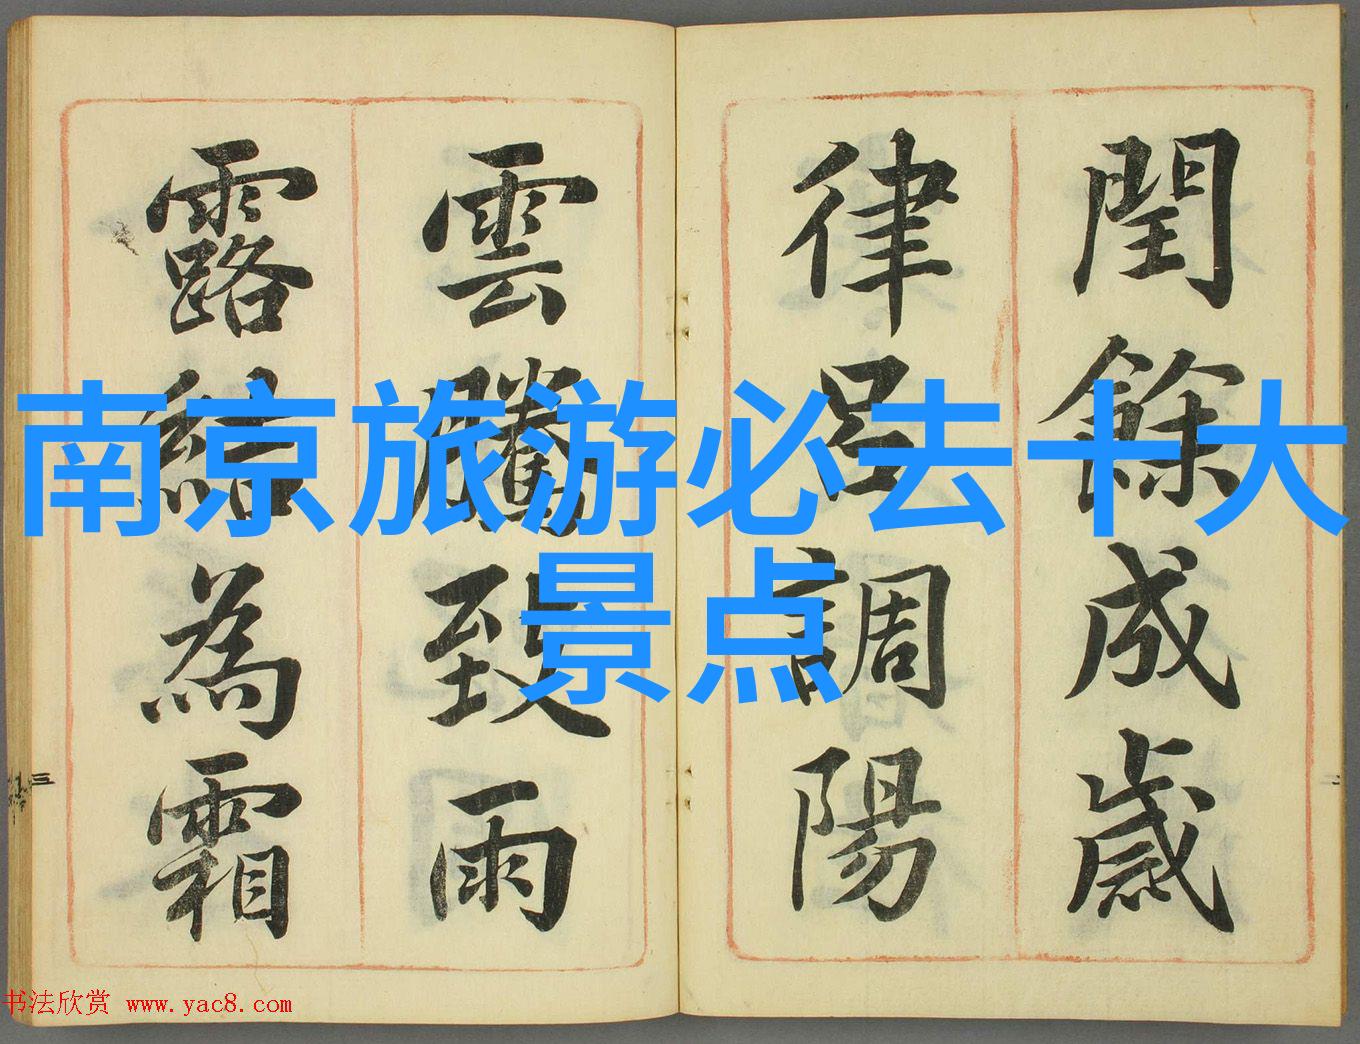 閏餘成歲
律呂調陽
雲騰致雨
露結為霜
南京旅游必去十大
景点
三
二
书法欣赏 www.yac8.com